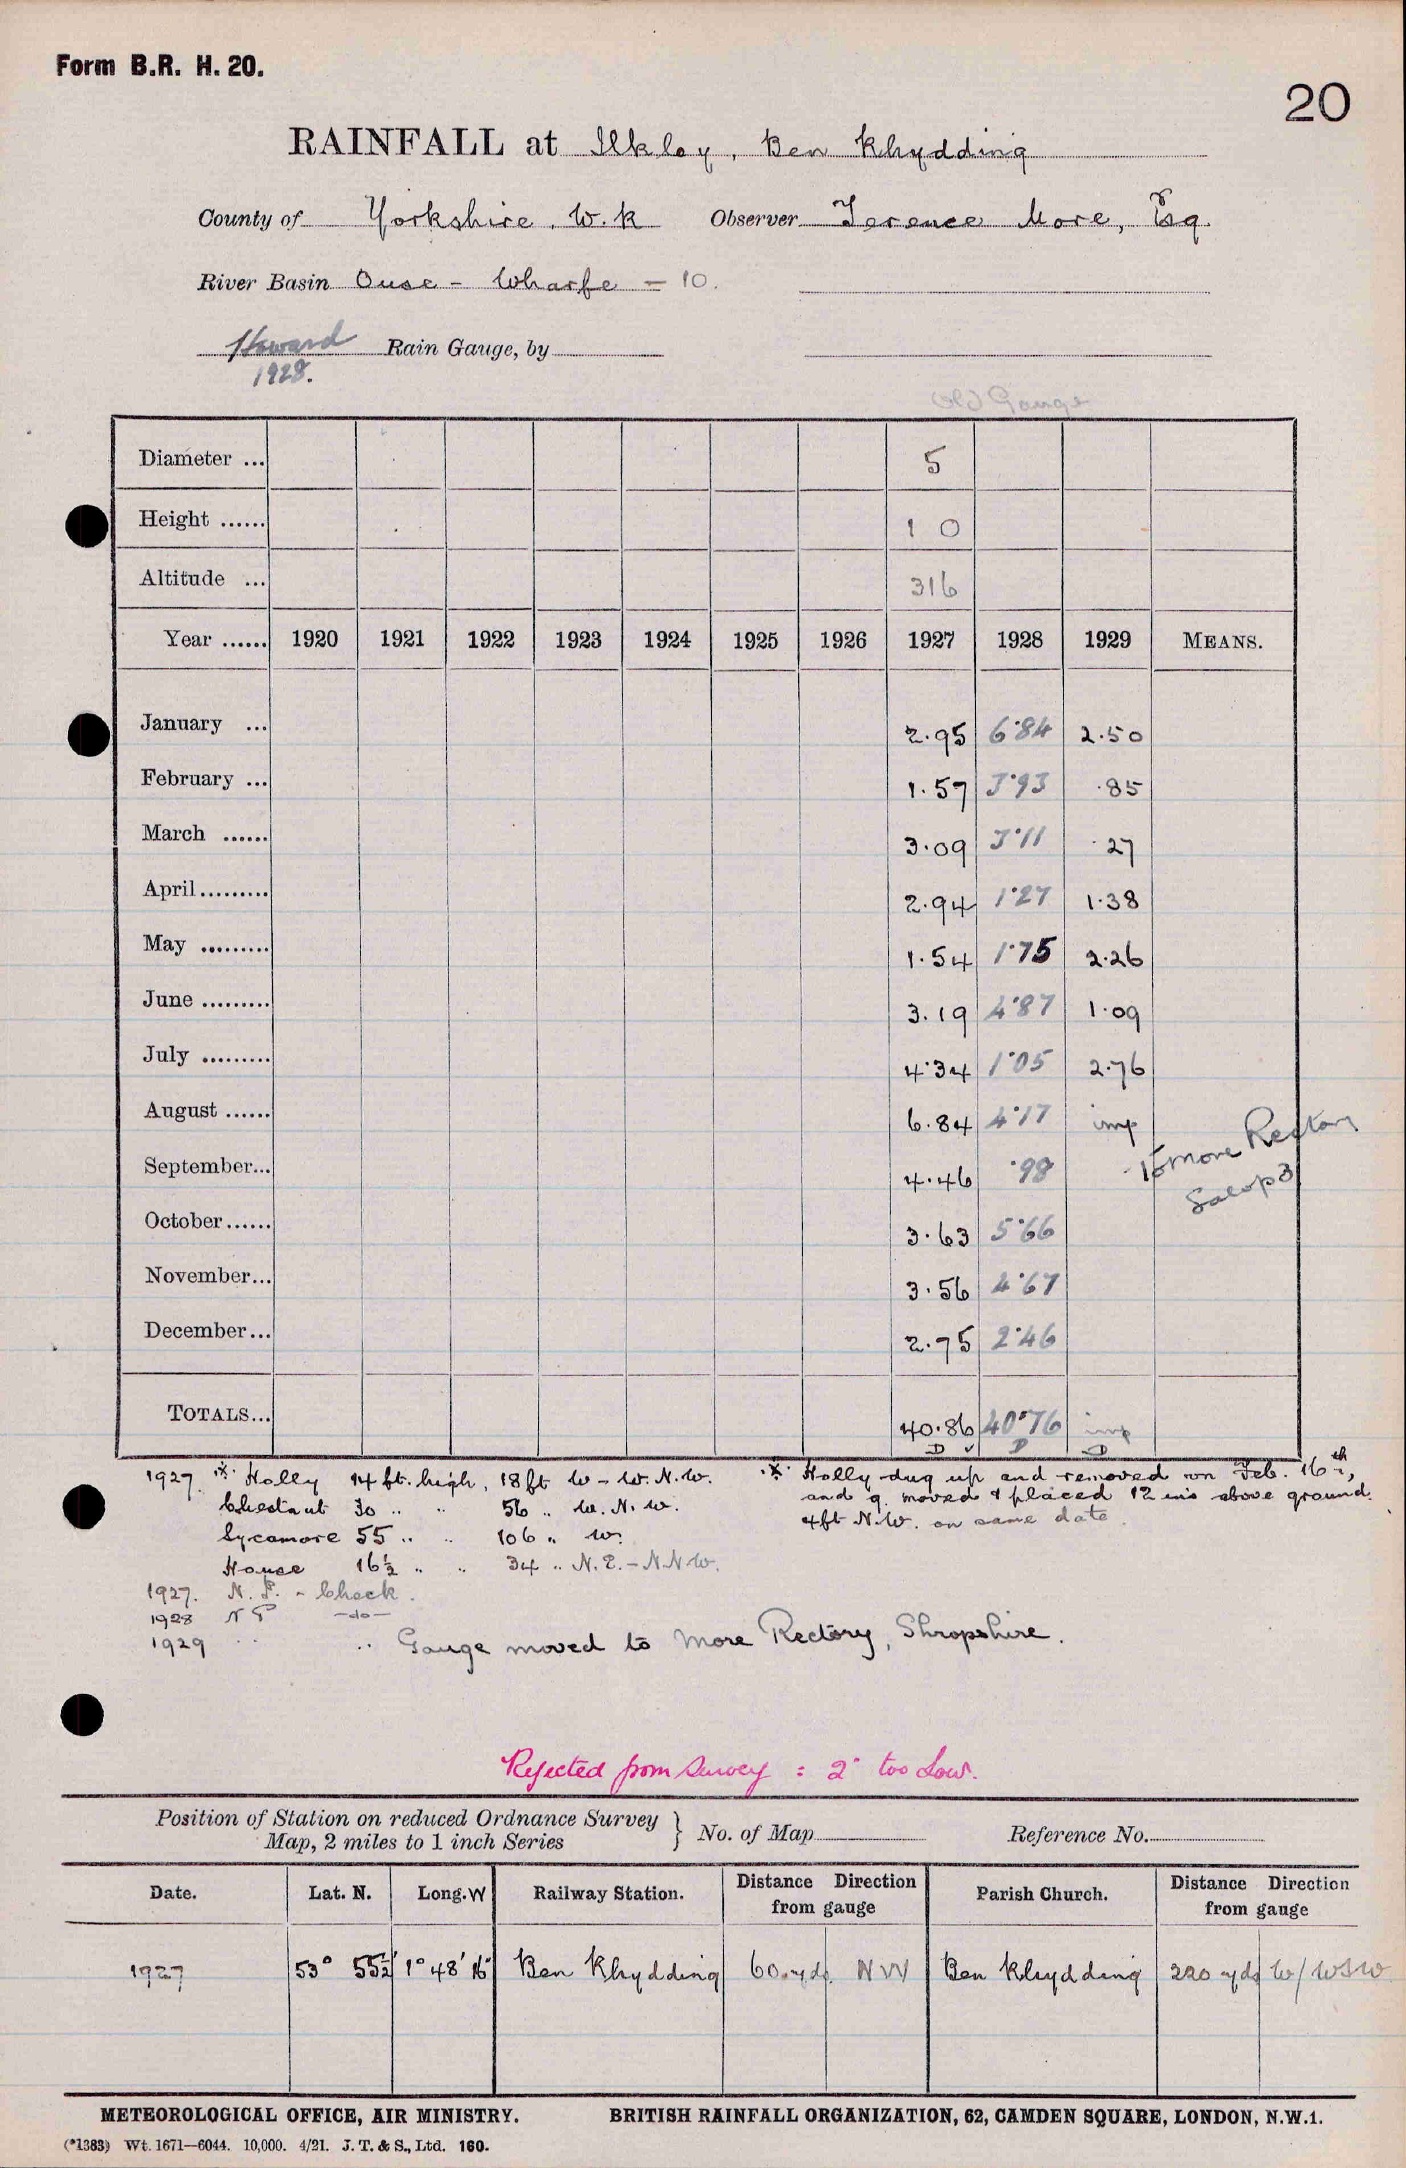 Form B.R. H. 20.
20
RAINFALL at Ilkley, Ben Rhydding
County of Yorkshire. W.R Observer Terence More, Esq.
River Basin Ouse - Wharfe - 10.
Howard Rain Gauge, by
1928.
Old Gauge
Diameter ... 5
Height ...... 1 0
Altitude ... 316
Year ...... 1920 1921 1922 1923 1924 1925 1926 1927 1928 1929 MEANS.
January ... 2.95 6.84 2.50
February ... 1.57 3.93 .85
March ...... 3.09 3.11 .27
April......... 2.94 1.27 1.38
May ......... 1.54 1.75 2.26
June ......... 3.19 4.87 1.09
July ......... 4.34 1.05 2.76
August ...... 6.84 4.17 imp
To More Rectory
September... 4.46 .98
Salop 3
October...... 3.63 5.66
November... 3.56 4.67
December... 2.75 2.46
TOTALS... 40.86 40.76 imp
D ✓ D D
1927 * Holly 14 ft. high, 18 ft W - W.N.W.
Chestnut 30 .. .. 56 .. W.N.W.
Sycamore 55 .. .. 106 .. W.
House 16½ .. .. 34 .. N.E. - NNW.
* Holly dug up and removed on Feb. 16th,
and g. moved & placed 12 ins above ground.
4ft N.W. on same date.
1927. N.P. - Check.
1928 N P -do-
1929 .. .. Gauge moved to More Rectory, Shropshire.
Rejected from Survey : 2" too Low.
Position of Station on reduced Ordnance Survey
Map, 2 miles to 1 inch Series } No. of Map Reference No.
Date. Lat. N. Long. W Railway Station. Distance Direction from gauge Parish Church. Distance Direction from gauge
1927 53° 55½' 1° 48' 16" Ben Rhydding 60 yds NW Ben Rhydding 220 yds W/WSW
METEOROLOGICAL OFFICE, AIR MINISTRY. BRITISH RAINFALL ORGANIZATION, 62, CAMDEN SQUARE, LONDON, N.W.1.
(*1383) Wt. 1671—6044. 10,000. 4/21. J. T. & S., Ltd. 160.